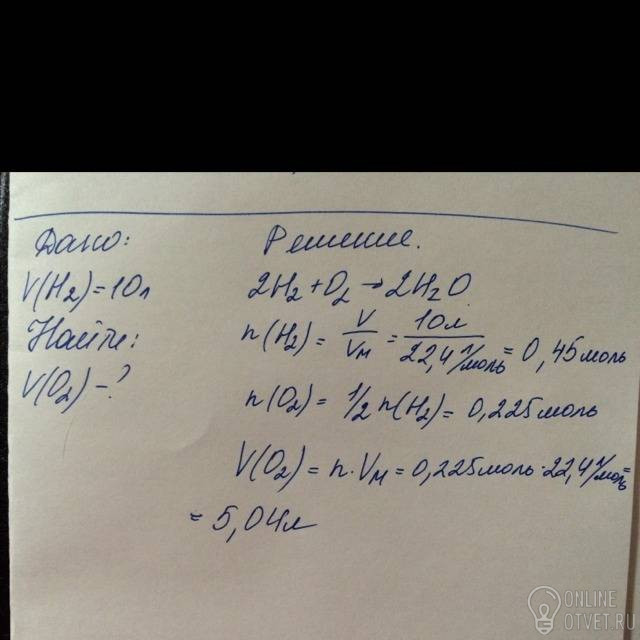 Дано:
V(H₂)=10л
Найти:
V(O₂)-?
Решение.
2H₂+O₂→2H₂O
n(H₂) = V/Vм = 10л/22,4л/моль = 0,45моль
n(O₂) = 1/2 n(H₂) = 0,225моль
V(O₂) = n·Vм = 0,225моль·22,4л/моль=
= 5,04л
ONLINE
OTVET.RU